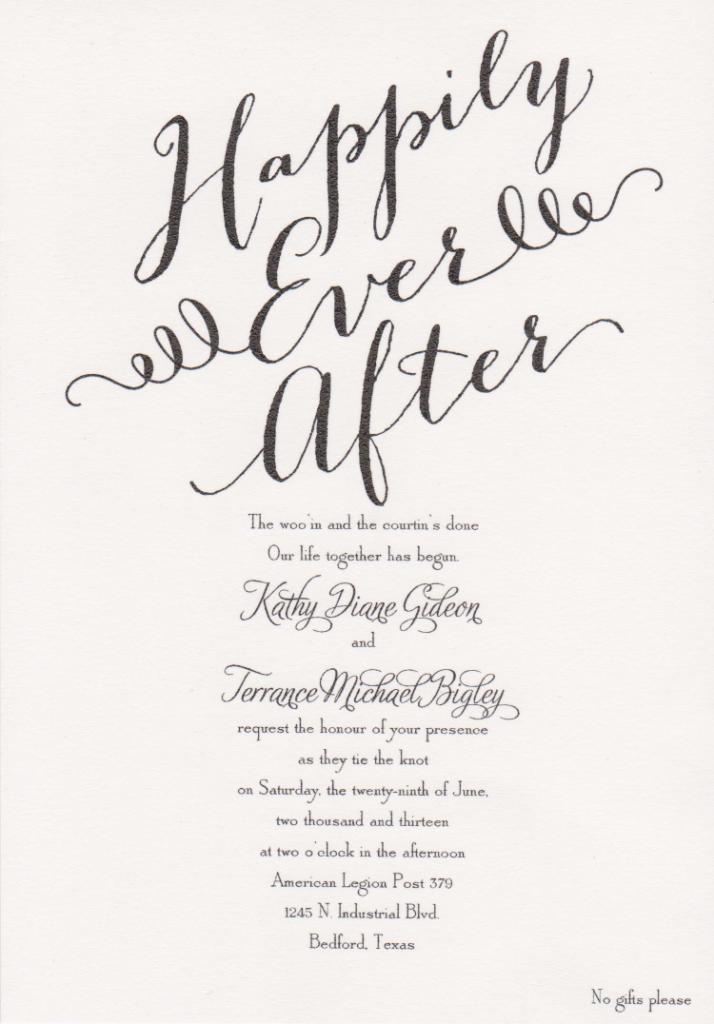 Happily
Ever
After
The woo'in and the courtin's done
Our life together has begun.
Kathy Diane Gideon
and
Terrance Michael Bigley
request the honour of your presence
as they tie the knot
on Saturday, the twenty-ninth of June,
two thousand and thirteen
at two o'clock in the afternoon
American Legion Post 379
1245 N. Industrial Blvd.
Bedford, Texas
No gifts please